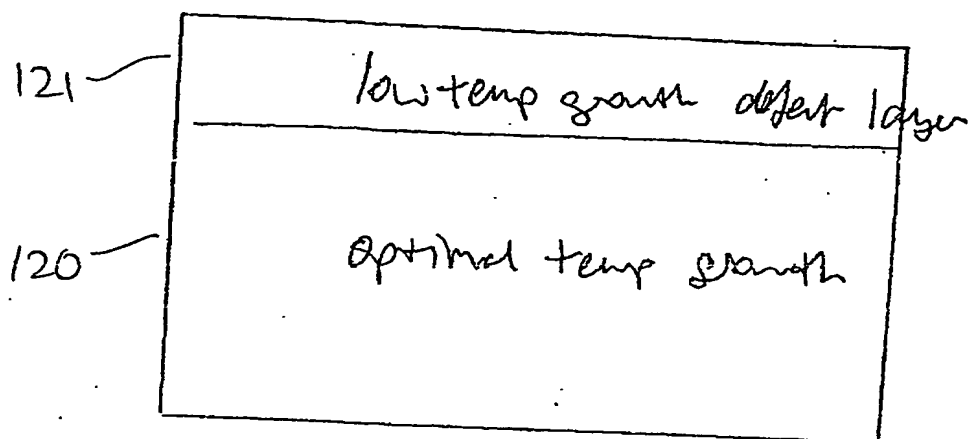 121 low temp growth defect layer
120 optimal temp growth